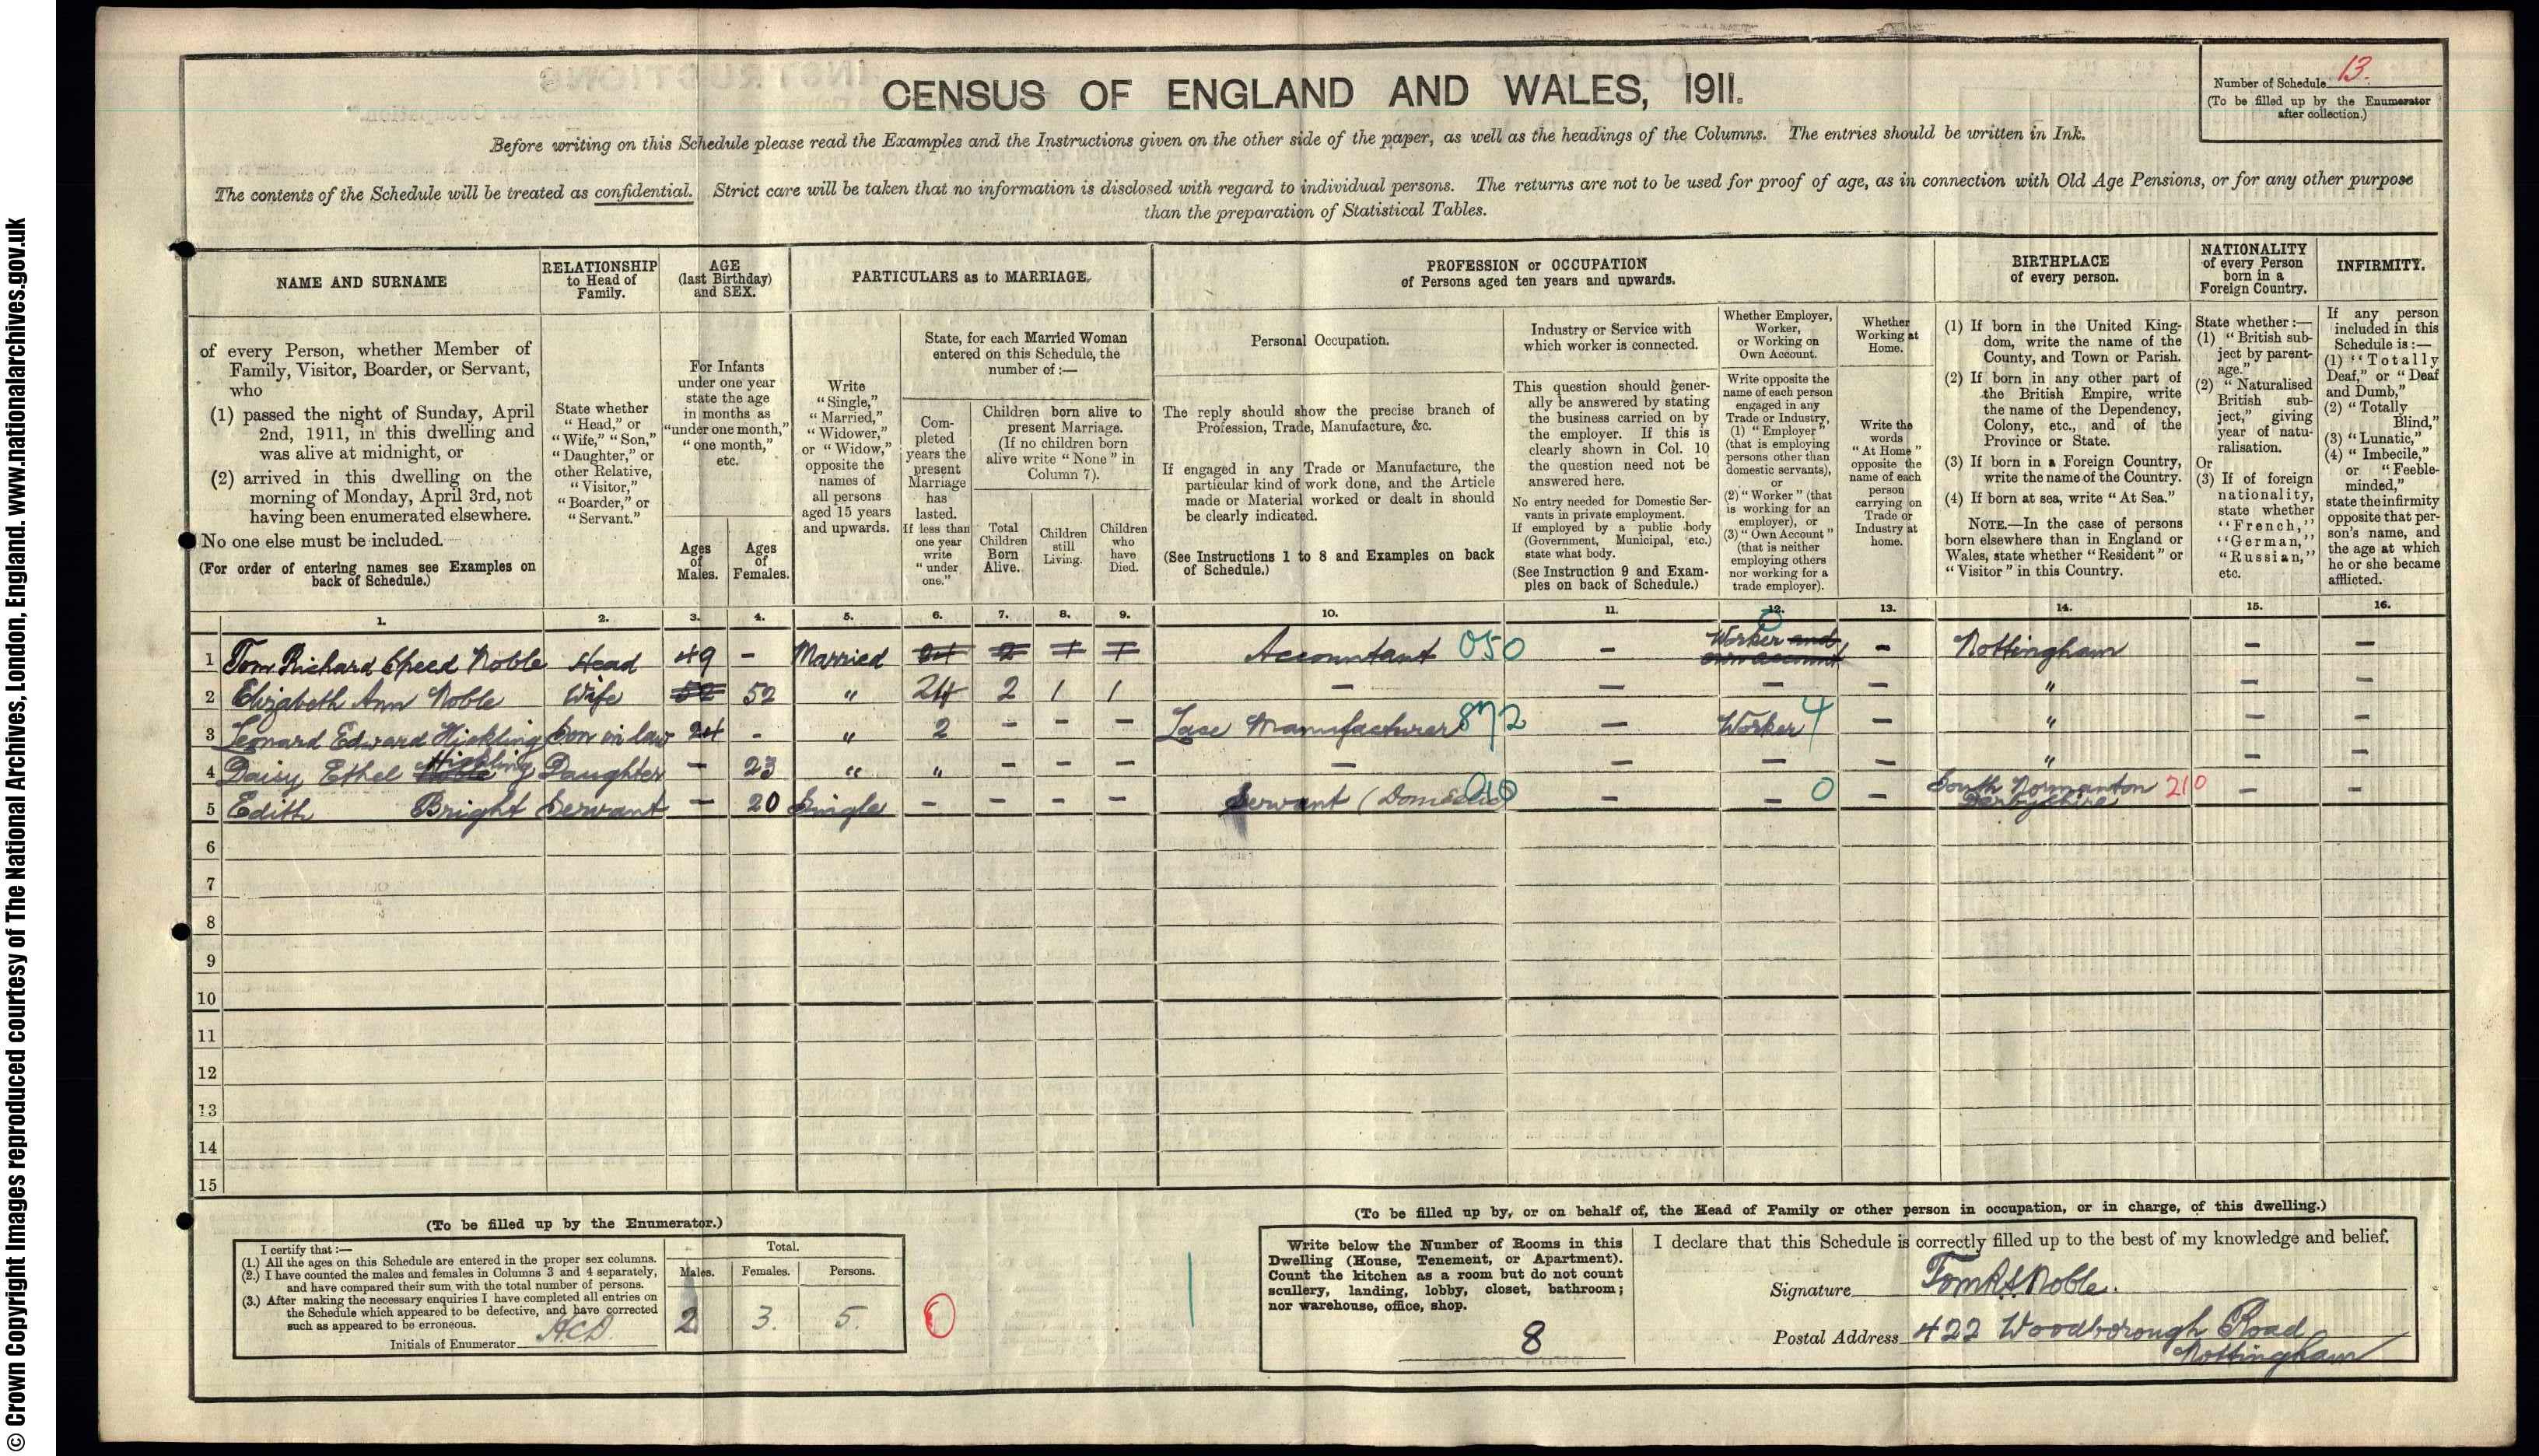 © Crown Copyright Images reproduced courtesy of The National Archives, London, England. www.nationalarchives.gov.uk
CENSUS OF ENGLAND AND WALES, 1911.
Number of Schedule 13.
(To be filled up by the Enumerator
after collection.)
Before writing on this Schedule please read the Examples and the Instructions given on the other side of the paper, as well as the headings of the Columns. The entries should be written in Ink.
The contents of the Schedule will be treated as confidential. Strict care will be taken that no information is disclosed with regard to individual persons. The returns are not to be used for proof of age, as in connection with Old Age Pensions, or for any other purpose
than the preparation of Statistical Tables.
NAME AND SURNAME
of every Person, whether Member of
Family, Visitor, Boarder, or Servant,
who
(1) passed the night of Sunday, April
2nd, 1911, in this dwelling and
was alive at midnight, or
(2) arrived in this dwelling on the
morning of Monday, April 3rd, not
having been enumerated elsewhere.
No one else must be included.
(For order of entering names see Examples on
back of Schedule.)
RELATIONSHIP
to Head of
Family.
State whether
"Head," or
"Wife," "Son,"
"Daughter," or
other Relative,
"Visitor,"
"Boarder," or
"Servant."
AGE
(last Birthday)
and SEX.
For Infants
under one year
state the age
in months as
"under one month,"
"one month,"
etc.
Ages
of
Males.
Ages
of
Females.
PARTICULARS as to MARRIAGE.
Write
"Single,"
"Married,"
"Widower,"
or "Widow,"
opposite the
names of
all persons
aged 15 years
and upwards.
State, for each Married Woman
entered on this Schedule, the
number of :—
Com-
pleted
years the
present
Marriage
has
lasted.
If less than
one year
write
"under
one."
Children born alive to
present Marriage.
(If no children born
alive write "None" in
Column 7).
Total
Children
Born
Alive.
Children
still
Living.
Children
who
have
Died.
PROFESSION or OCCUPATION
of Persons aged ten years and upwards.
Personal Occupation.
The reply should show the precise branch of
Profession, Trade, Manufacture, &c.
If engaged in any Trade or Manufacture, the
particular kind of work done, and the Article
made or Material worked or dealt in should
be clearly indicated.
(See Instructions 1 to 8 and Examples on back
of Schedule.)
Industry or Service with
which worker is connected.
This question should gener-
ally be answered by stating
the business carried on by
the employer. If this is
clearly shown in Col. 10
the question need not be
answered here.
No entry needed for Domestic Ser-
vants in private employment.
If employed by a public body
(Government, Municipal, etc.)
state what body.
(See Instruction 9 and Exam-
ples on back of Schedule.)
Whether Employer,
Worker,
or Working on
Own Account.
Write opposite the
name of each person
engaged in any
Trade or Industry,
(1) "Employer"
(that is employing
persons other than
domestic servants),
or
(2) "Worker" (that
is working for an
employer), or
(3) "Own Account"
(that is neither
employing others
nor working for a
trade employer).
Whether
Working at
Home.
Write the
words
"At Home"
opposite the
name of each
person
carrying on
Trade or
Industry at
home.
BIRTHPLACE
of every person.
(1) If born in the United King-
dom, write the name of the
County, and Town or Parish.
(2) If born in any other part of
the British Empire, write
the name of the Dependency,
Colony, etc., and of the
Province or State.
(3) If born in a Foreign Country,
write the name of the Country.
(4) If born at sea, write "At Sea."
NOTE.—In the case of persons
born elsewhere than in England or
Wales, state whether "Resident" or
"Visitor" in this Country.
NATIONALITY
of every Person
born in a
Foreign Country.
State whether :—
(1) "British sub-
ject by parent-
age."
(2) "Naturalised
British sub-
ject," giving
year of natu-
ralisation.
Or
(3) If of foreign
nationality,
state whether
"French,"
"German,"
"Russian,"
etc.
INFIRMITY.
If any person
included in this
Schedule is :—
(1) "Totally
Deaf," or "Deaf
and Dumb,"
(2) "Totally
Blind,"
(3) "Lunatic,"
(4) "Imbecile,"
or "Feeble-
minded,"
state the infirmity
opposite that per-
son's name, and
the age at which
he or she became
afflicted.
1. 2. 3. 4. 5. 6. 7. 8. 9. 10. 11. 12. 13. 14. 15. 16.
1 Tom Richard Speed Noble Head 49 – Married 24 2 1 1 Accountant 050 – Worker and own account – Nottingham – –
2 Elizabeth Ann Noble Wife 52 52 " 24 2 1 1 – – – – " – –
3 Leonard Edward Hickling Son in law 24 - " 2 – – – Lace Manufacturer 872 – Worker 4 – " – –
4 Daisy Ethel Noble Hickling Daughter – 23 " " – – – – – – – " – –
5 Edith Bright Servant – 20 Single – – – – Servant (Domestic) – – 0 – South Normanton Derbyshire 210 – –
6
7
8
9
10
11
12
13
14
15
(To be filled up by the Enumerator.)
I certify that :—
(1.) All the ages on this Schedule are entered in the proper sex columns.
(2.) I have counted the males and females in Columns 3 and 4 separately,
and have compared their sum with the total number of persons.
(3.) After making the necessary enquiries I have completed all entries on
the Schedule which appeared to be defective, and have corrected
such as appeared to be erroneous.
Initials of Enumerator HCD
Total.
Males. Females. Persons.
2 3. 5.
(To be filled up by, or on behalf of, the Head of Family or other person in occupation, or in charge, of this dwelling.)
Write below the Number of Rooms in this
Dwelling (House, Tenement, or Apartment).
Count the kitchen as a room but do not count
scullery, landing, lobby, closet, bathroom;
nor warehouse, office, shop.
8
I declare that this Schedule is correctly filled up to the best of my knowledge and belief.
Signature Tom R S Noble.
Postal Address 422 Woodborough Road
Nottingham